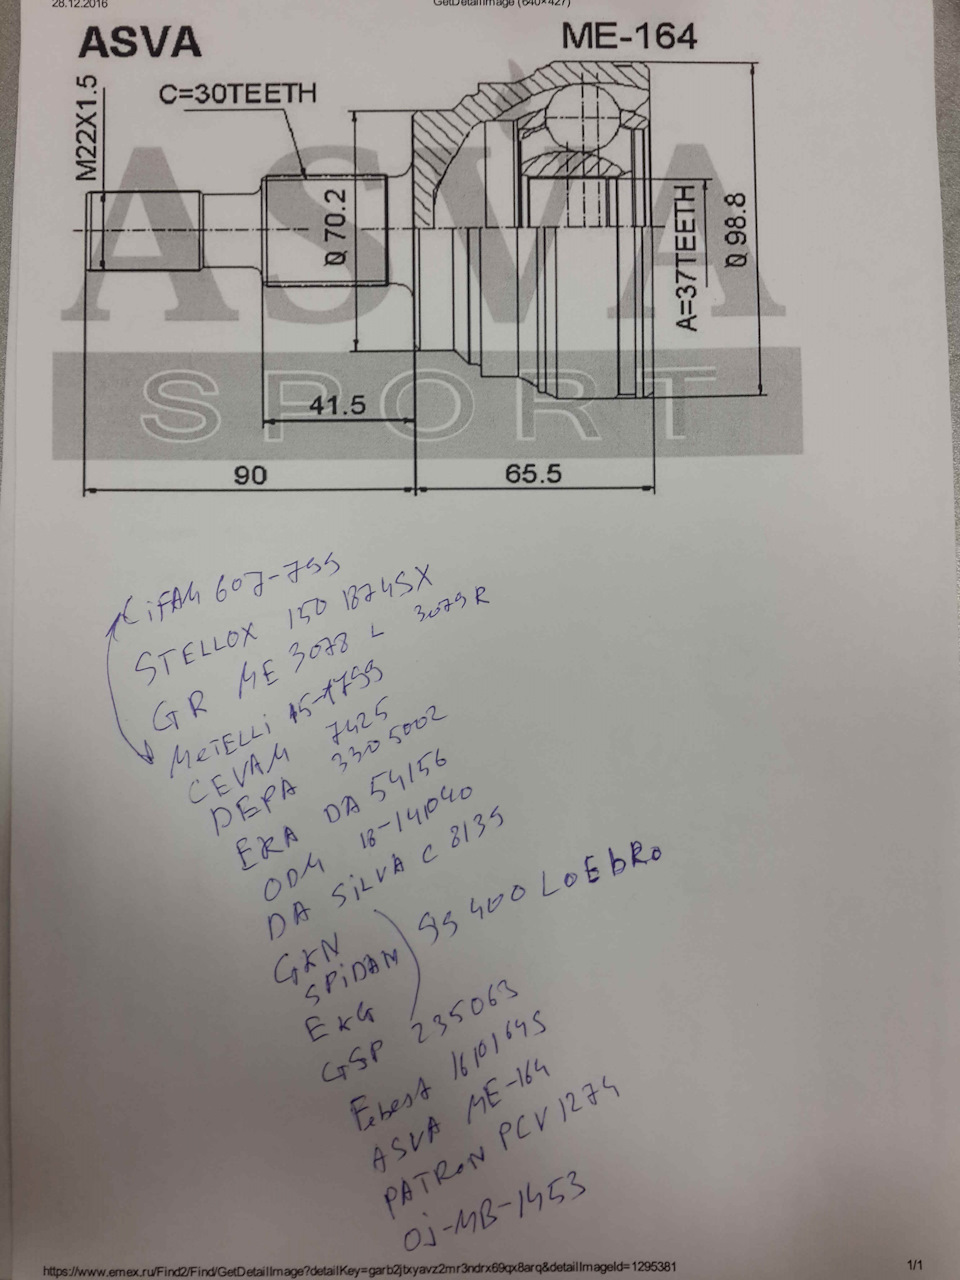 28.12.2016 GetDetailImage (640×427)
ASVA ME-164
M22X1.5
C=30TEETH
Ø 70.2
A=37TEETH
Ø 98.8
ASVA
SPORT
41.5
90 65.5
CiFAM 607-799
STELLOX 150 1874SX
GR ME 3078 L 3079 R
METELLi 15-1799
CEVAM 7425
DEPA 3305002
ERA DA 54156
ODM 18-141040
DA SiLVA C 8139
GKN
SPiDAN 99400 LOEbRo
EKG
GSP 235063
Febest 1610164S
ASVA ME-164
PATRoN PCV 1274
Oj-MB-1453
https://www.emex.ru/Find2/Find/GetDetailImage?detailKey=garb2jtxyavz2mr3ndrx69qx8arq&detailImageId=1295381 1/1